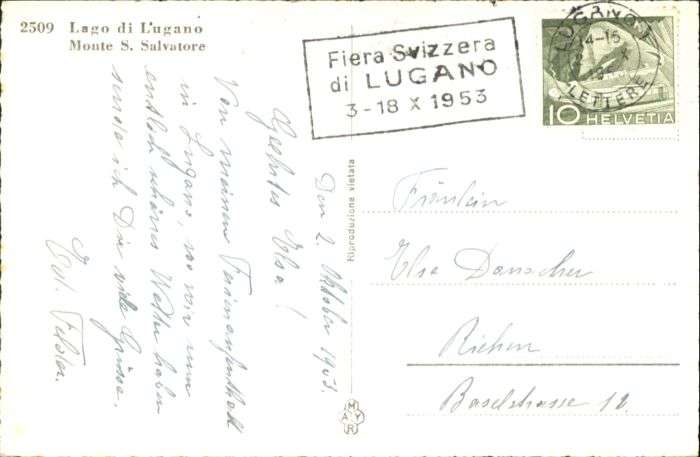 2509 Lago di Lugano
Monte S. Salvatore
Fiera Svizzera
di LUGANO
3-18 X 1953
LUGANO 1
14-15
LETTERE
10 HELVETIA
Den 2. Oktober 1953.
Geehrtes Elsa!
Von meinem Ferienaufenthalt
in Lugano, wo wir nun
endlich schönes Wetter haben
sende ich Dir viele Grüsse.
Ed.
Riproduzione vietata
MAYR
Fräulein
Elsa Danscher
Riehen
Baselstrasse 12.